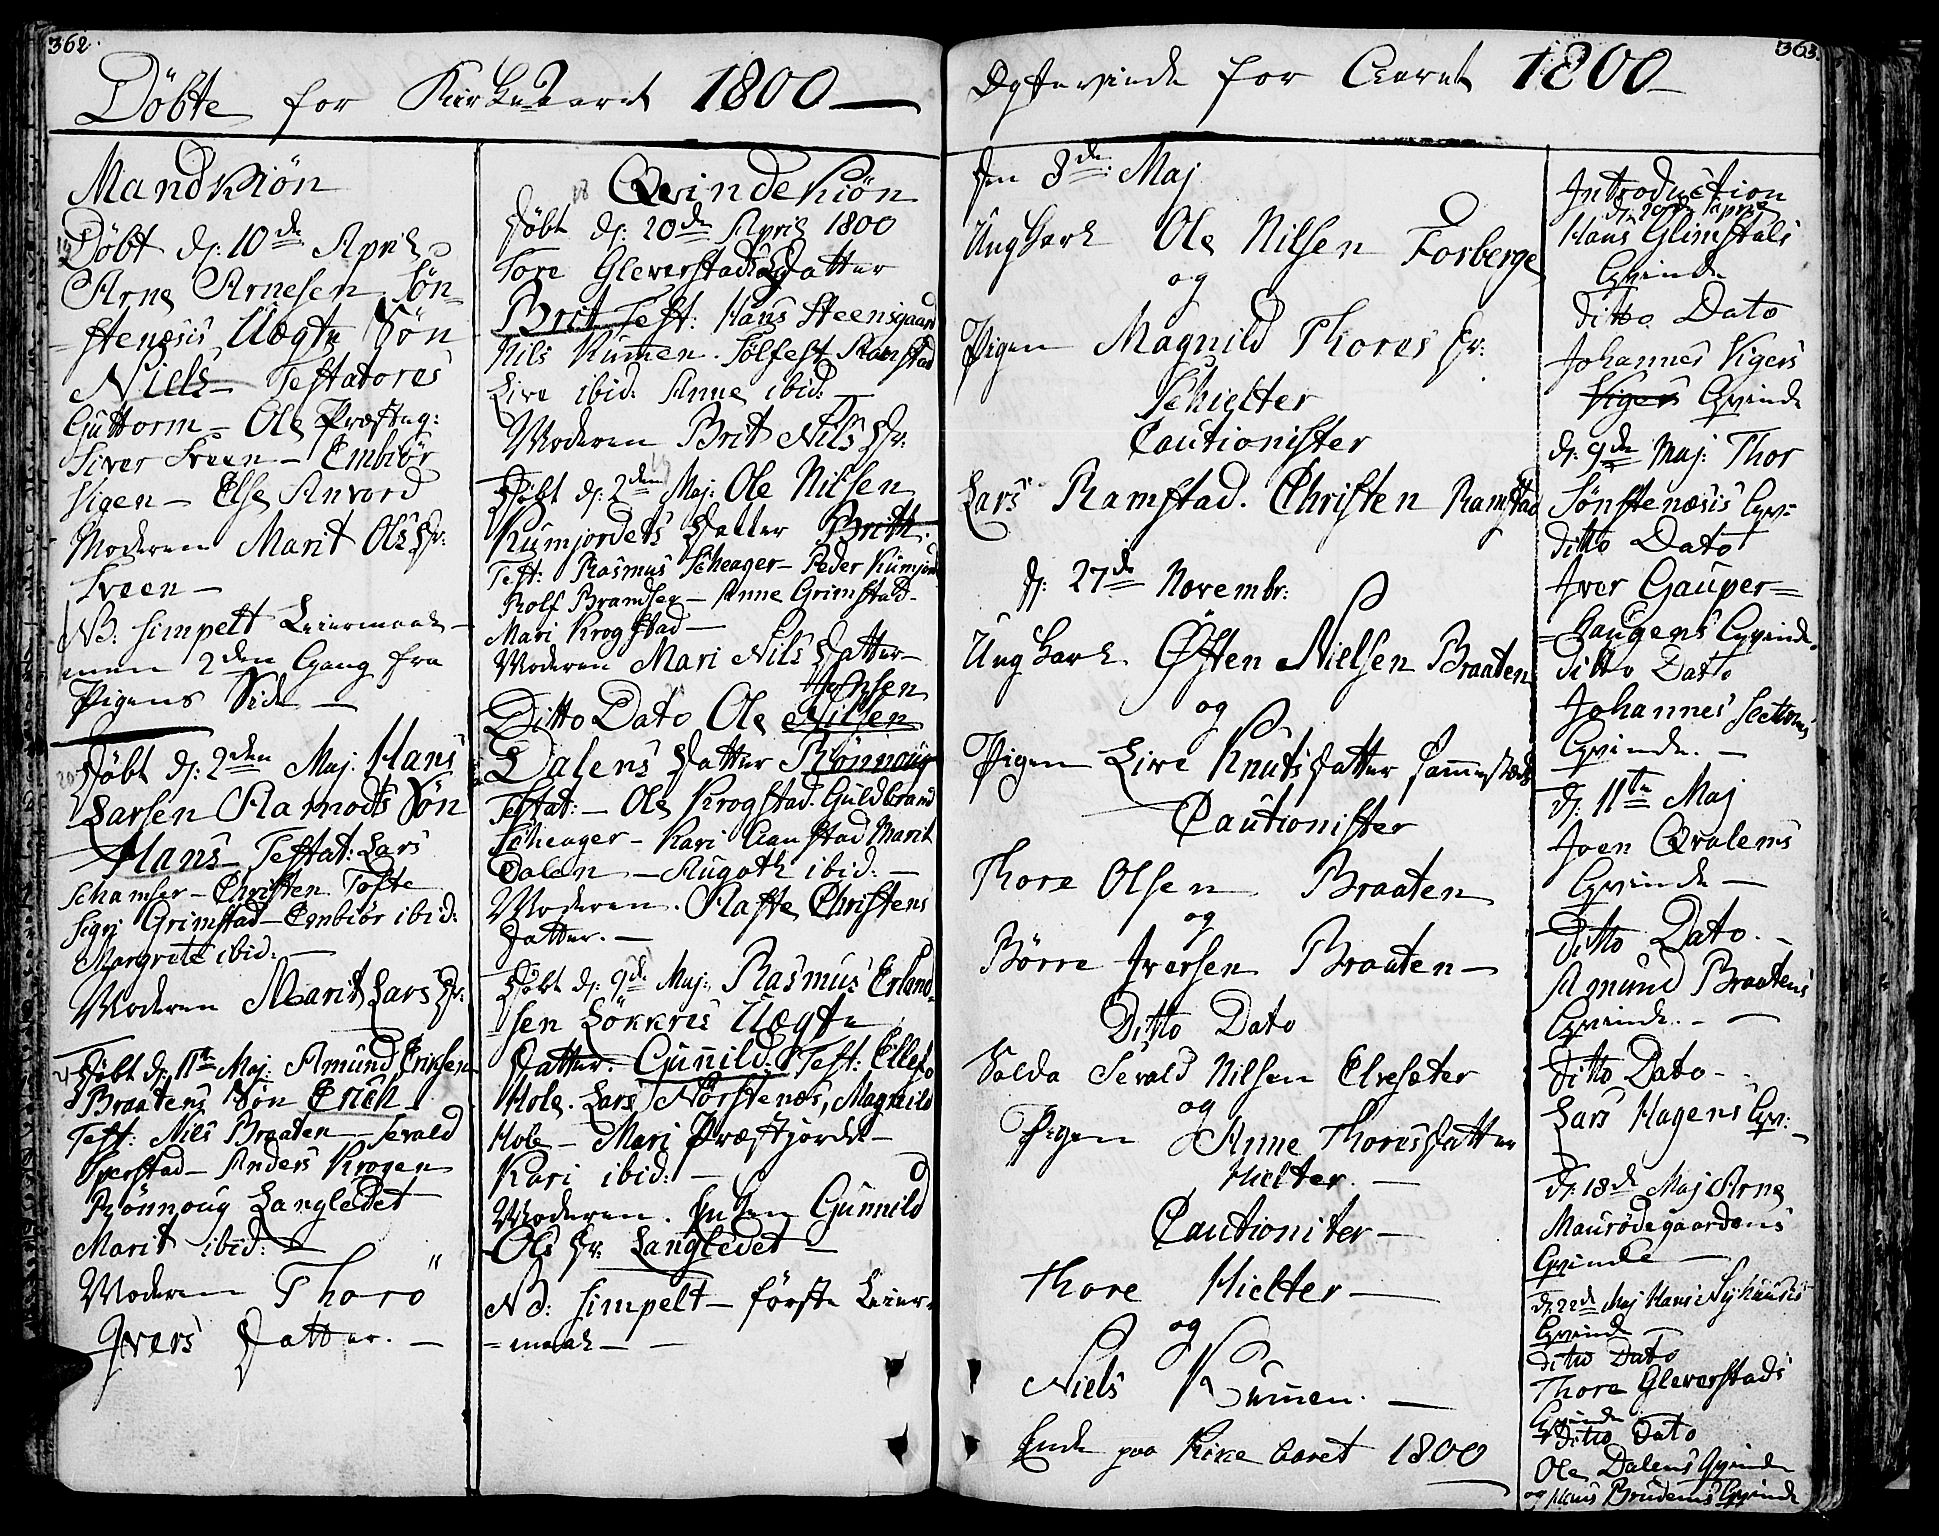 362.
Döbte for Kirke Aaret 1800
Mandkiön
19
Döbt d: 10de April
Arne Arnesen Sön-
stenæsis Uægte Sön
Niels Testatores
Guttorm - Ole Præsteg:
Siver Sveen - Embiör
Vigen - Else Anvord
Moderen Marit Ols Dr:
Sveen
NB: simpelt Leiermaal
men 2den Gang fra
Pigens Side
20
Döbt d: 2den Maj: Hans
Larsen Ramods Sön
Hans - Testat: Lars
Schamser - Christen Tofte
Sigri Grimstad - Embiör ibid:
Margrete ibid:
Moderen Marit Lars Dr:
21
Döbt d: 11te Maj: Amund Eriksen
Braatens Sön Erich
Test: Nils Braaten - Sevald
Sperstad - Anders Krogen
Rönnoug Langledet
Marit ibid:
Moderen Thoro
Ivers Datter.
18
Qvindekiön
Döbt d: 20de April 1800
Tore Gleverstads Datter
Brit Test: Hans Steensgaard
Nils Kumen. Tolfest Ramstad
Live ibid: Anne ibid:
Moderen Brit Nils Dr:
19
Döbt d: 2den Maj: Ole Nilsen
Kumjordets Datter Britt.
Test: Rasmus Scheager - Peder Kumjord
Rolf Brandser - Anne Grimstad
Mari Krogstad
Moderen Mari Nils Datter
Johsen
Ditto Dato Ole Nilsen
Dalens Datter Rönnoug
Testat: - Ole Krogstad. Guldbrand
Scheager - Kari Aanstad Marit
Dalen - Augoth ibid:
Moderen. Raste Christens
Datter.
Döbt d: 9de Maj: Rasmus Erland-
sen Lökkres Uægte
Datter. Gunild. Test: Ellef
Hole. Lars Nörstenæs, Magnild
Hole - Mari Præstjordet
Kari ibid:
Moderen. Enken Gunnild
Ols Dr: Langledet
NB: simpelt - förste Leier-
=maal
363.
Ægtevinde for Aaret 1800
Den 8de: Maj
Ung Karl Ole Nilsen Forberge
og
Pigen Magnild Thores Dr:
Schielter
Cautionister
Lars Ramstad. Christen Ramstad
d: 27de Novembr:
Ung Karl. Östen Nielsen Braaten
og
Pigen Live Knuts Datter sammesteds
Cautionister
Thore Olsen Braaten
og
Börre Iversen Braaten
Ditto Dato
Solda Sevald Nilsen Elvesæter
og
Pigen Anne Thores Datter
Hielter.
Cautioniter
Thore Hielter
og
Niels Kumen.
Ende paa Kirke Aaret 1800
Introduction
d: 20de April
Hans Glimstads
Qvinde
Ditto Dato
Johannes Vigers
Vigers Qvinde
d: 9de Maj: Thor
Sönstenæsis Qvi:
Ditto Dato
Iver Gauper=
=haugens Qvinde.
Ditto Dato
Johannes
Qvinde.
d: 11te Maj
Joen Qvalems
Qvinde
Ditto Dato.
Amund Braatens
Qvinde.
Ditto Dato
Lars Hagens Qv:
d: 18de Maj Arne
Maurödegaardens
Qvinde
d: 22de Maj Hans Nyhuuses
Qvinde
Ditto Dato
Thore Gleverstads
Qvinde
Ditto Dato
Ole Dalens Qvinde
og Hans Brudens Qvinde